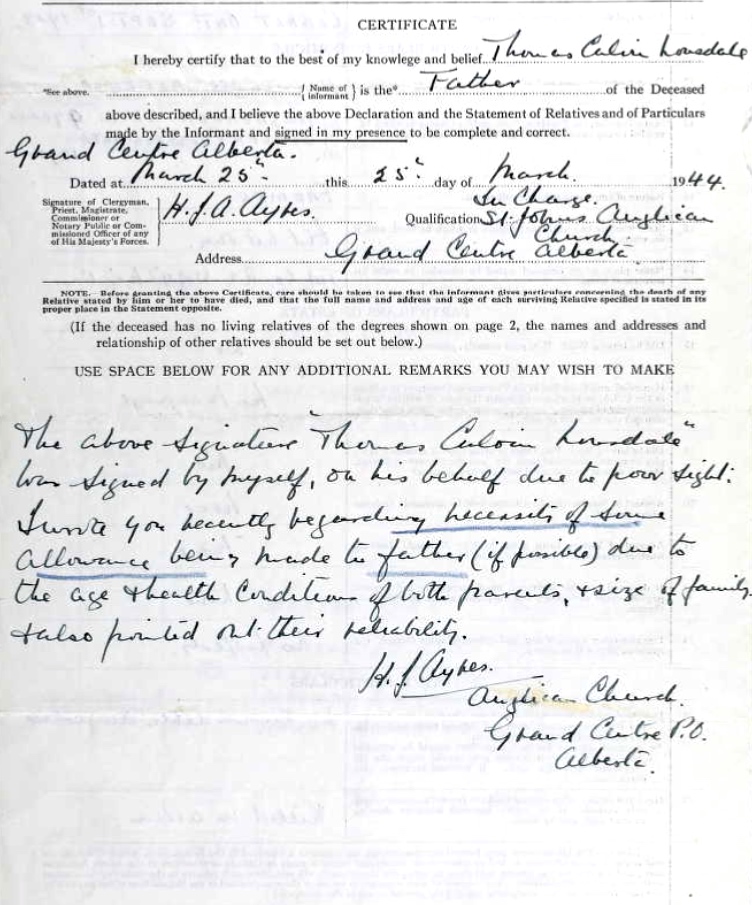 CERTIFICATE
I hereby certify that to the best of my knowlege and belief Thomas Calvin Lonsdale
*See above. { Name of Informant } is the* Father of the Deceased
above described, and I believe the above Declaration and the Statement of Relatives and of Particulars
made by the Informant and signed in my presence to be complete and correct.
Grand Centre Alberta.
Dated at March 25th this 25th day of March. 1944.
Signature of Clergyman, Priest, Magistrate, Commissioner or Notary Public or Commissioned Officer of any of His Majesty's Forces. } H.J.A. Aykes. Qualification In Charge. St. Johns Anglican Church
Address Grand Centre Alberta
NOTE.—Before granting the above Certificate, care should be taken to see that the informant gives particulars concerning the death of any
Relative stated by him or her to have died, and that the full name and address and age of each surviving Relative specified is stated in its
proper place in the Statement opposite.
(If the deceased has no living relatives of the degrees shown on page 2, the names and addresses and
relationship of other relatives should be set out below.)
USE SPACE BELOW FOR ANY ADDITIONAL REMARKS YOU MAY WISH TO MAKE
The above signature "Thomas Calvin Lonsdale"
was signed by myself, on his behalf due to poor sight.
I wrote you recently regarding necessity of some
allowance being made to father (if possible) due to
the age & health conditions of both parents, & size of family.
& also pointed out their reliability.
H.J. Aykes.
Anglican Church.
Grand Centre P.O.
Alberta.